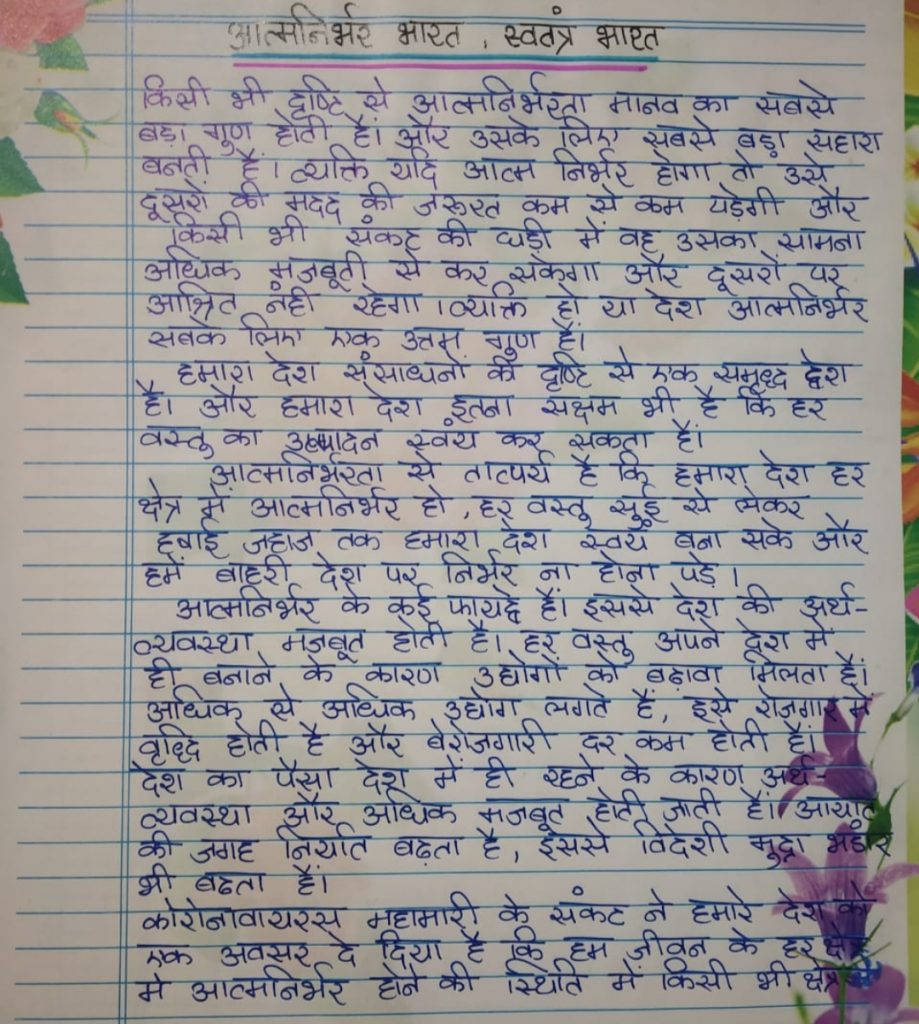 आत्मनिर्भर भारत , स्वतंत्र भारत
किसी भी दृष्टि से आत्मनिर्भरता मानव का सबसे
बड़ा गुण होती है। और उसके लिए सबसे बड़ा सहारा
बनती है। व्यक्ति यदि आत्म निर्भर होगा तो उसे
दूसरों की मदद की जरूरत कम से कम पड़ेगी और
किसी भी संकट की घड़ी में वह उसका सामना
अधिक मजबूती से कर सकेगा और दूसरों पर
आश्रित नहीं रहेगा । व्यक्ति हो या देश आत्मनिर्भर
सबके लिए एक उत्तम गुण है।
हमारा देश संसाधनों की दृष्टि से एक समृद्ध देश
है। और हमारा देश इतना सक्षम भी है कि हर
वस्तु का उत्पादन स्वयं कर सकता है।
आत्मनिर्भरता से तात्पर्य है कि हमारा देश हर
क्षेत्र में आत्मनिर्भर हो , हर वस्तु सुई से लेकर
हवाई जहाज तक हमारा देश स्वयं बना सके और
हमें बाहरी देश पर निर्भर ना होना पड़े ।
आत्मनिर्भर के कई फायदे हैं। इससे देश की अर्थ-
व्यवस्था मजबूत होती है। हर वस्तु अपने देश में
ही बनाने के कारण उद्योगों को बढ़ावा मिलता है।
अधिक से अधिक उद्योग लगते हैं, इसे रोजगार में
वृद्धि होती है और बेरोजगारी दर कम होती है।
देश का पैसा देश में ही रहने के कारण अर्थ-
व्यवस्था और अधिक मजबूत होती जाती है। आयात
की जगह निर्यात बढ़ता है, इससे विदेशी मुद्रा भंडार
भी बढता है।
कोरोनावायरस महामारी के संकट ने हमारे देश को
एक अवसर दे दिया है कि हम जीवन के हर क्षेत्र
मे आत्मनिर्भर होने की स्थिति में किसी भी क्षेत्र